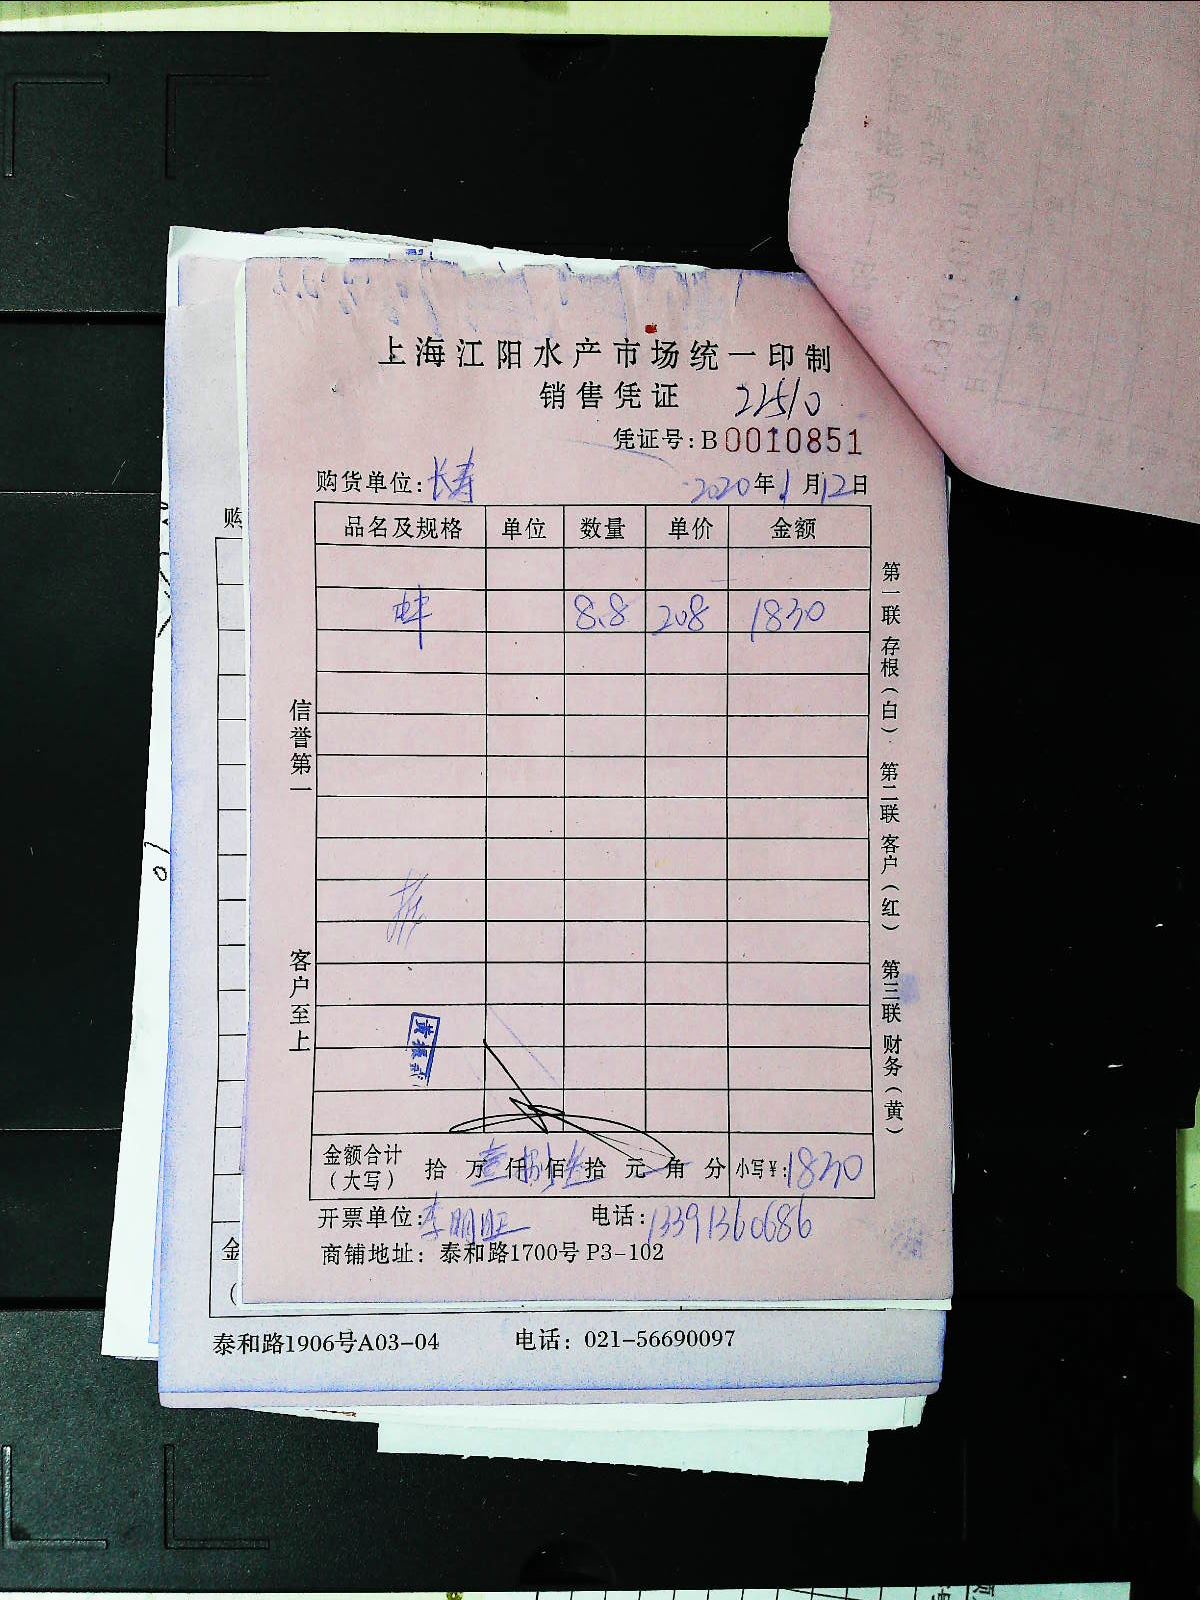 上海江阳水产市场统一印制
销售凭证 22510
凭证号:B0010851
购货单位:长寿 2020年1月12日
品名及规格 单位 数量 单价 金额
8.8 208 1830
信誉第一
客户至上
第一联 存根(白) 第二联 客户(红) 第三联 财务(黄)
金额合计(大写) 拾 万壹仟捌佰叁拾 元 角 分 小写¥:1830
开票单位:李明旺 电话:13391360686
商铺地址: 泰和路1700号 P3-102
购
金
泰和路1906号A03-04 电话: 021-56690097